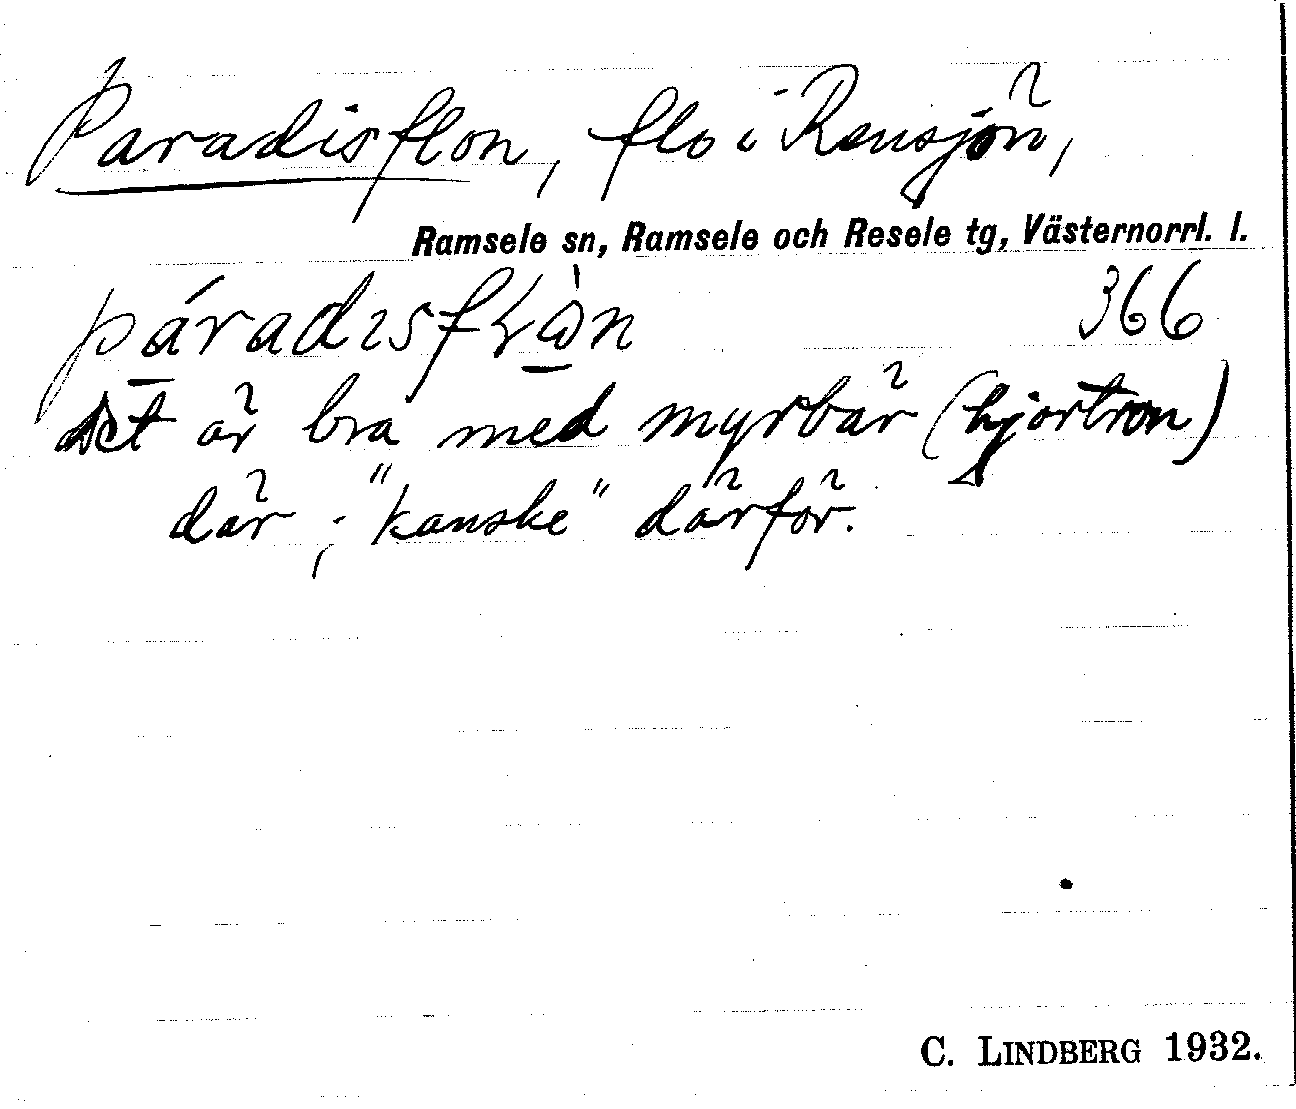 Paradisflon, flo i Rensjön,
Ramsele sn, Ramsele och Resele tg, Västernorrl. l.
366
Det är bra med myrbär (hjortron)
där ; "kanske" därför.
C. LINDBERG 1932.